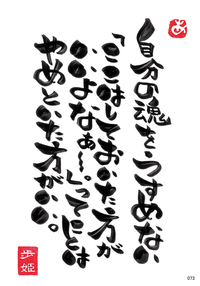 あ
自分の魂をうすめない
「ここはしておいた方が
いいよなぁ〜。」ってことは
やめといた方がいい。
歩姫
073